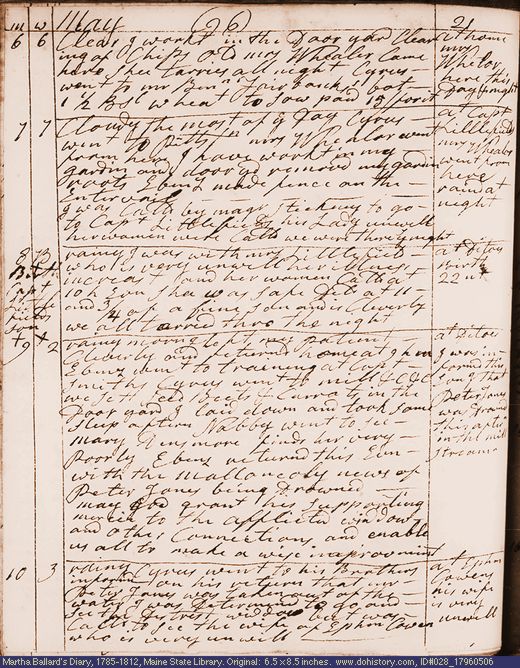 m w May (96) 21
6 6 Clear I workt in the Door yard Clear
ing of Chips &c Mrs Whealer Came
here Shee tarries all night Cyrus
went to mr Ben. Fairbanks bot
1 2 Bsl wheat to Sow paid 19/ for it
at home
mrs
Whelor
here this
Day & night
7 7 Cloudy the most of ye Day Cyrus
went to Pitts mrs Whealor went
from here I have workt in my
gardin and door yd removd my
roots Ebenz made fence on the
Intervail
I was Calld by
to go
to Capt Littlefields his Lady unwell
her women were Calld we were there thro night
at Capt
Littlefields
mrs Whealer
went from
here
rain at
night
8
rainy I was with mrs Littlefield
who is very unwell her illness
increast and her women Calld at
10 h Even she was safe Dld at 11
and 3/4 of a fine son and is Cleverly
we all tarried thro the night
at Ditoes
Birth
22 nd
9 2 rainy morn I left my Patient
Cleverly and returnd home at 9 h m
Ebenz went to training at Capt
Smiths Cyrus went to mill &c &c
we sett seed Beets & Carrots in the
Door yard I laid down and took some
sleep aftern Nabby went to see
mary
finds her very
Poorly Ebenz returned this Evn
with the mallancoly news of
Peter Jones being Drowned
may God grant his supporting
mercies to the afflicted widdow
and other Connections and enable
us all to make a wise improvment
at Ditoes
I was in
formd this
Evng that
Peter Jones
was Drownd
this aftern
in the mill
Stream
10 3
Cyrus went to his Brothers
informd on his return that mr
Peter Jones was taken out of the
water I was determind to go and
see the distrest widdow but was
Calld to see the wife of Ephm Cowen
who is very unwell
at Ephm
Cowens
his wife
is very
unwell
Martha Ballard's Diary, 1785-1812, Maine State Library. Original: 6.5 x 8.5 inches. www.dohistory.com, ID#028_17960506